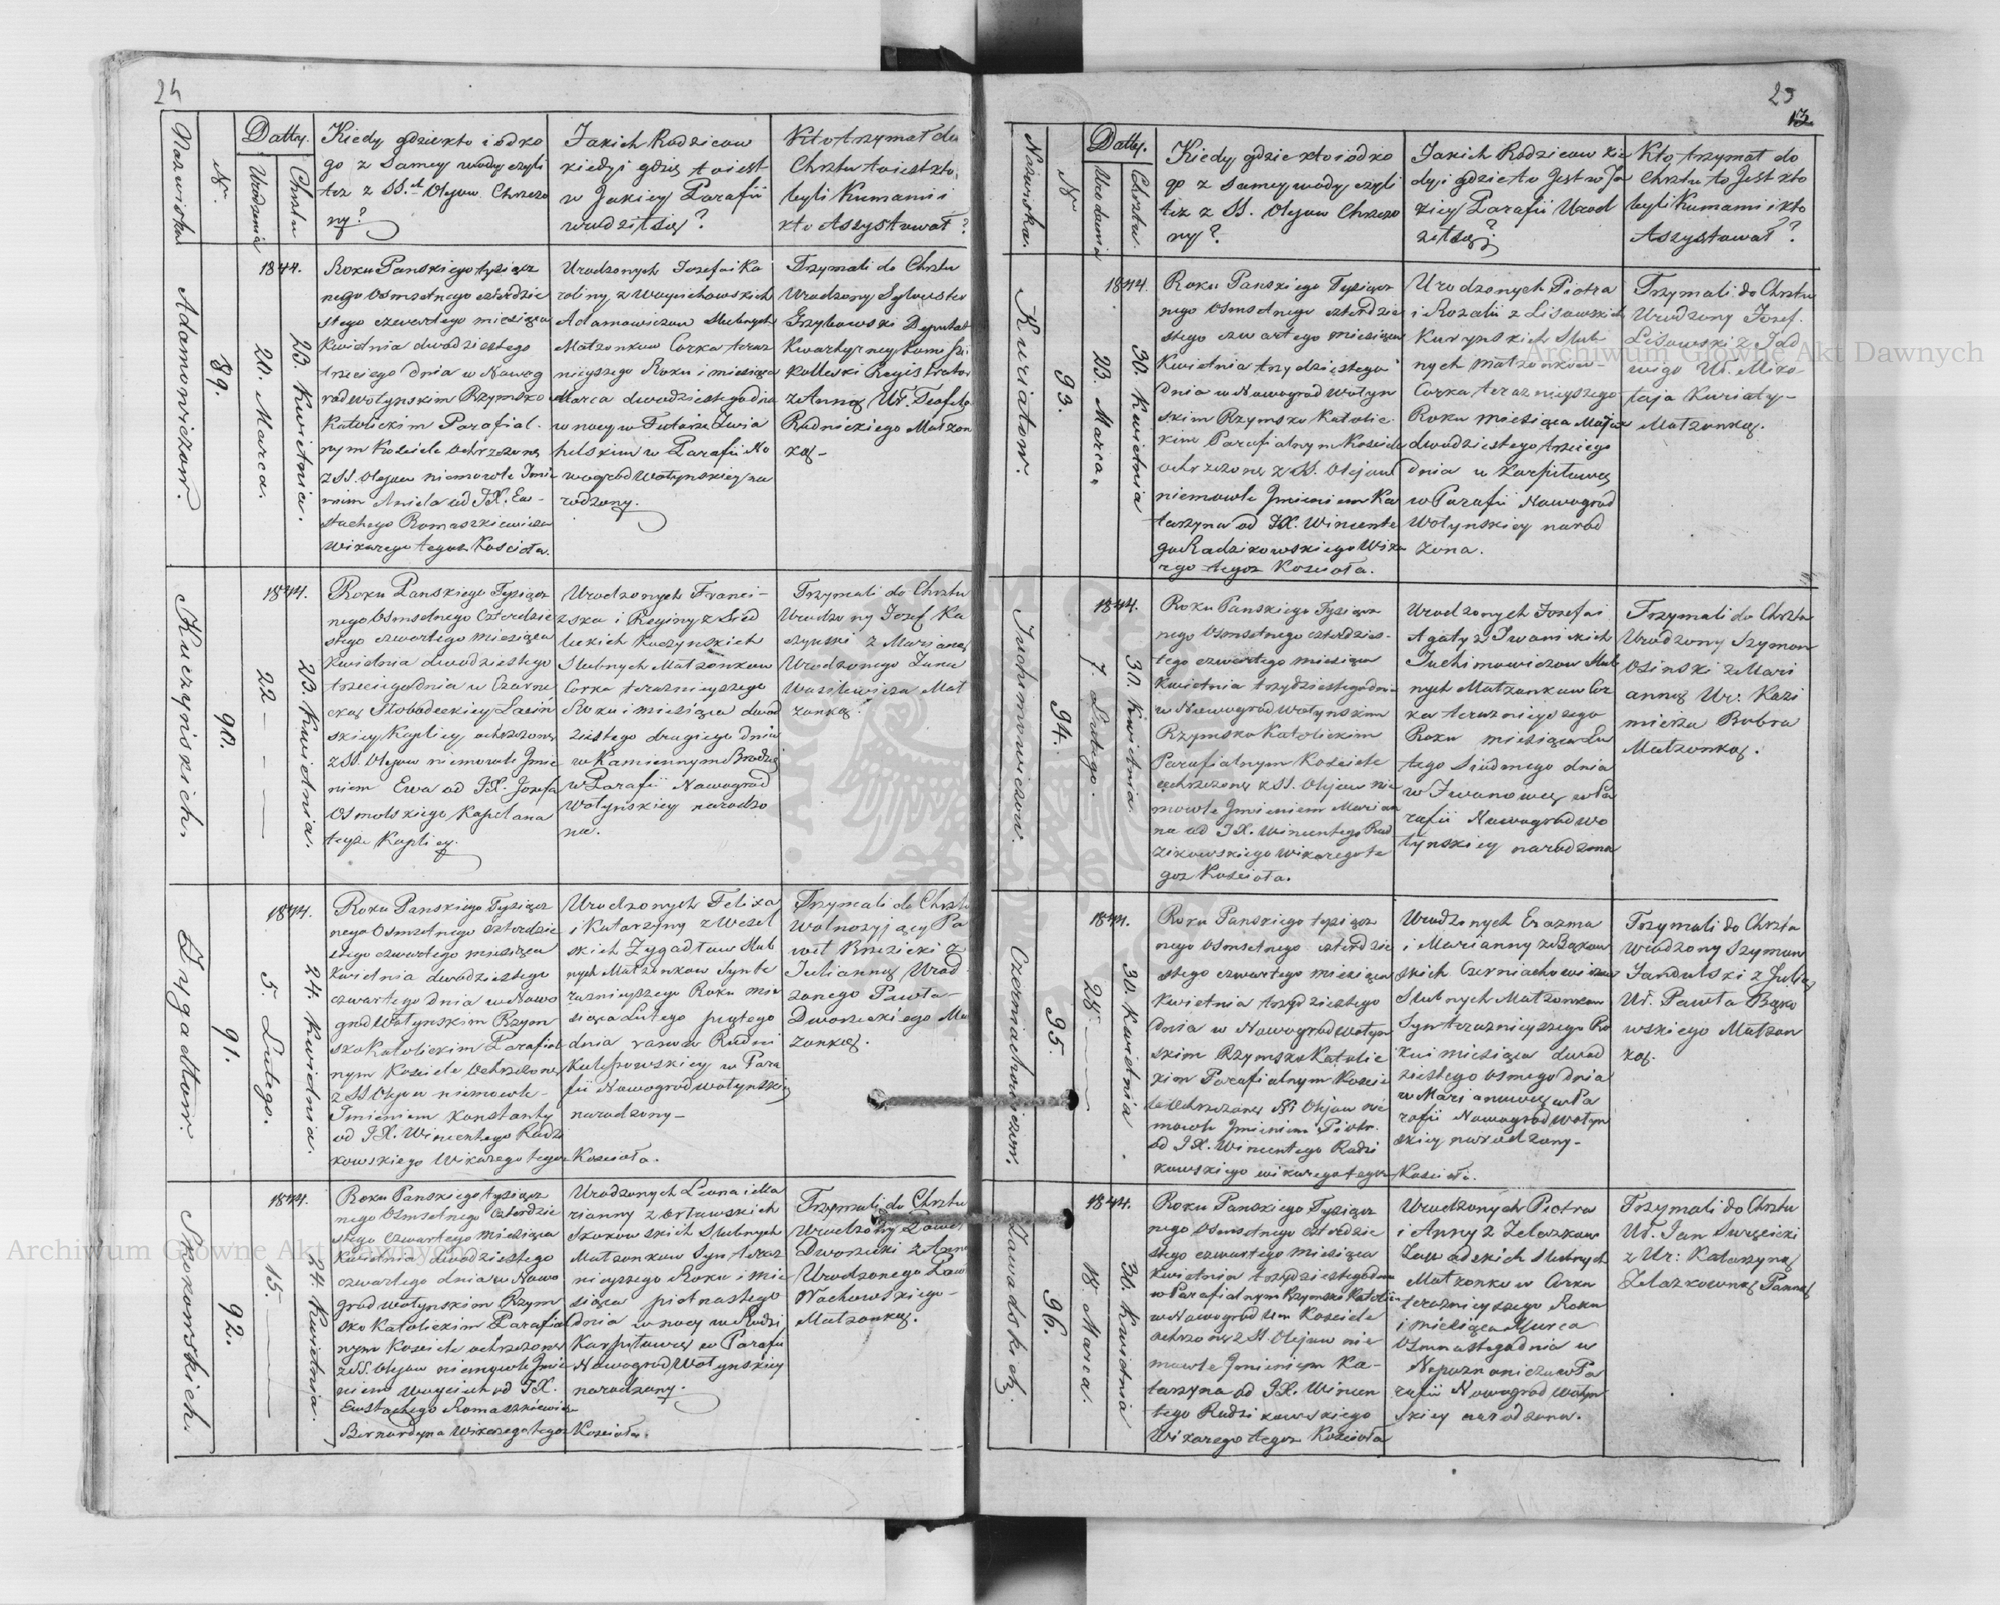 24
Nazwiska
N.
Datty.
Urodzenia
Chrztu
Kiedy gdzie kto i od ko
go z samey wody czyli
też z SS.ch Olejow Chrzczo
ny?
Jakich Rodzicow
kiedy i gdzie to iest
w Jakiey Parafii
urodził się?
Kto trzymał do
Chrztu to iest kto
byli Kumami i
kto Assystował?
Adamowiczow.
89.
1844.
20. Marca.
23. Kwietnia.
Roku Panskiego tysiącz
nego Osmsetnego czterdzie
stego czwartego miesiąca
Kwietnia dwudziestego
trzeciego dnia w Nowog
rodwołynskim Rzymsko
Katolickim Parafial.
nym Kościele ochrzczone
z SS. Olejow niemowle Imie
niem Aniela od JX. Eu-
stachego Romaszkiewicza
Wikarego tegoż Kościoła.
Urodzonych Jozefa i Ka
roliny z Woyciechowskich
Adamowiczow Slubnych
Małzonkow Corka teraz
nieyszego Roku i miesiąca
Marca dwudziestego dnia
w nocy w Futorze Zwia
helskim w Parafii No
wogrod Wołynskiey na
rodzony.
Trzymali do Chrztu
Urodzony Sylwester
Grzybowski Deputat
Kwartyrney Komissi
Kollegski Registrator
z Anną Ur. Teofila
Rudnickiego Małzon
ką-
Kuczyńskich.
90.
1844.
22
23. Kwietnia.
Roku Panskiego Tysiącz
nego Osmsetnego Czterdzie
stego czwartego miesiąca
Kwietnia dwudziestego
trzeciego dnia w Czarne
ckiey Słobodeckiey Łacin
skiey Kaplicy ochrzczone
z SS. Olejow niemowle Imie
niem Ewa od JX. Jozefa
Osmolskiego Kapelana
teyże Kaplicy.
Urodzonych Franci-
szka i Reginy z Sied
leckich Kuczynskich
Slubnych Małzonkow
Corka teraznieyszego
Roku i miesiąca dwud
ziestego drugiego dnia
w Kamiennym Brodzie
w Parafii Nowogrod
Wołyńskiey narodzo
na.
Trzymali do Chrztu
Urodzony Jozef Ka
czynski z Marianną
Urodzonego Jana
Wasilewicza Mał
zonką.
Zygadłow.
91.
1844.
5. Lutego.
24. Kwietnia.
Roku Panskiego Tysiącz
nego Osmsetnego czterdzie
stego czwartego miesiąca
Kwietnia dwudziestego
czwartego dnia w Nowo
grod Wołynskim Rzym
sko Katolickim Parafial
nym Kościele Ochrzczone
z SS Olejow niemowle-
Imieniem Konstanty
od JX. Wincentego Radzi
kowskiego Wikarego tegoż Kościoła.
Urodzonych Felixa
i Katarzyny z Wesel
skich Zygadłow Slub
nych Małzonkow Syn te
raznieyszego Roku mie
siąca Lutego piątego
dnia rano w Rudni
Kulepowskiey w Para
fii Nowogrodwołynskiey
narodzony-
Trzymali do Chrztu
Wolnozyjący Pa
weł Brzezicki z
Julianną Urod
zonego Pawła-
Dworzeckiego Mał
zonką.
Skokowskich.
92.
1844.
15.
24. Kwietnia.
Roku Panskiego tysiącz
nego Osmsetnego Czterdzie
stego Czwartego Miesiąca
Kwietnia dwudziestego
czwartego dnia w Nowo
grod wołynskim Rzym
sko Katolickim Parafial
nym Kościele ochrzczone
z SS. Olejow niemowle Imie
niem Woyciech od JX.
Eustachego Romaszkiewicza
Bernardyna Wikarego tegoż Kościoła.
Urodzonych Leona i Ma
rianny z Orłowskich
Skokowskich Slubnych
Małzonkow Syn teraz
nieyszego Roku i mie
siąca piętnastego
dnia w nocy w Rudni
Karpiłowce w Parafii
Nowogrod Wołynskiey
narodzony.
Trzymali do Chrztu
Urodzony Paweł
Dworzecki z Anną
Urodzonego Pawła
Wachowskiego-
Małzonką.
25
13
Nazwiska.
N
Datty.
Urodzenia
Chrztu
Kiedy gdzie kto i od ko
go z samey wody czyli
też z SS. Olejow Chrzczo
ny?
Jakich Rodzicow kie
dy i gdzie to Jest w Ja
kiey Parafii Urod
ził się?
Kto trzymał do
Chrztu to Jest kto
byli Kumami i kto
Assystował?
Kuriatow.
93.
1844.
23. Marca.
30. Kwietnia
Roku Panskiego Tysiącz
nego Osmsetnego czterdzie
stego czwartego miesiąca
Kwietnia trzydziestego
dnia w Nowogrod Wołyn
skim Rzymsko Katolic
kim Parafialnym Kosciele
ochrzczone z SS. Olejow
niemowle Imieniem Ka
tarzyna od JX. Wincente
go Radzikowskiego Wika
rego tegoż Kosciola.
Urodzonych Piotra
i Rozalii z Lisowskich
Kurynskich Slub
nych małzonkow-
Corka teraznieyszego
Roku miesiąca Marca
dwudziestego trzeciego
dnia w Karpiłowce
w Parafii Nowogrod
Wołynskiey narod
zona.
Trzymali do Chrztu
Urodzony Jozef
Lisowski z Jad
wigą Ur. Miko
łaja Kuriaty-
Małzonką.
Juchimowiczow.
94.
1844.
7 Lutego.
30. Kwietnia.
Roku Panskiego Tysiącz
nego Osmsetnego czterdzies-
tego czwartego miesiąca
Kwietnia trzydziestego dnia
w Nowogrodwołynskim
Rzymsko Katolickim
Parafialnym Kosciele
ochrzczone z SS. Olejow nie
mowle Imieniem Marian
na od JX. Wincentego Rad
zikowskiego Wikarego te
goż Kosciola.
Urodzonych Jozefa i
Agaty z Iwanickich
Juchimowiczow Slub
nych Małzonkow Cor
ka teraznieyszego
Roku miesiąca Lu
tego Siodmego dnia
w Iwanowce w Pa
rafii Nowogrodwo
łynskiey narodzona
Trzymali do Chrztu
Urodzony Szymon
Osinski z Mari
anną Ur. Kazi
mierza Bobra
Małzonką.
Czerniachowiczow.
95.
1844.
28
30. Kwietnia.
Roku Panskiego tysiącz
nego Osmsetnego czterdzie
stego czwartego miesiąca
Kwietnia trzydziestego
dnia w Nowogrod wołyn
skim Rzymsko Katolic
kim Parafialnym Koscie
le Ochrzczone SS Olejow nie
mowle Imieniem Piotr
od JX. Wincentego Radzi
kowskiego wikarego tegoż Kościoła.
Urodzonych Erazma
i Marianny z Bąkow
skich Czerniachowiczow
Slubnych Małzonkow
Syn teraznieyszego Ro
ku i miesiąca dwud
ziestego osmego dnia
w Marianowce w Pa
rafii Nowogrod wołyn
skiey narodzony-
Trzymali do Chrztu
Urodzony Szymon
Jandulski z Julią
Ur. Pawła Bąko
wskiego Małzon
ką.
Zawadskich.
96.
1844.
18. Marca.
30. Kwietnia
Roku Panskiego Tysiącz
nego Osmsetnego czterdzie
stego czwartego miesiąca
Kwietnia trzydziestego dnia
w Parafialnym Rzymsko Katolic
w Nowogrodzkim Kosciele
ochrzczone z SS Olejow nie
mowle Imieniem Ka-
tarzyna od JX. Wincen
tego Radzikowskiego
Wikarego tegoż Kościoła
Urodzonych Piotra
i Anny z Zelazkow
Zawadskich Slubnych
Małzonkow Corka
teraznieyszego Roku
i miesiąca Marca
Osmnastego dnia w
Nepoznanicza w Pa
rafii Nowogrod Wołyn
skiey narodzona.
Trzymali do Chrztu
Ur. Jan Suręcicki
z Ur: Katarzyną
Zelazkowną Panną
Archiwum Główne Akt Dawnych
Archiwum Główne Akt Dawnych